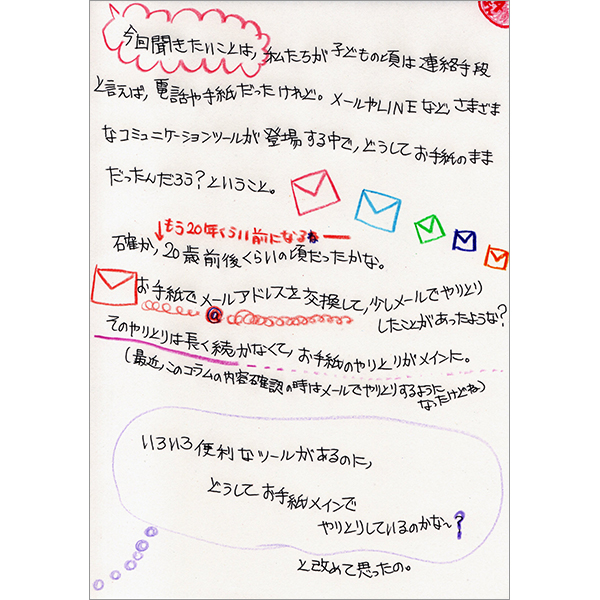 今回聞きたいことは、私たちが子どもの頃は連絡手段
と言えば、電話や手紙だったけれど。メールやLINEなど、さまざま
なコミュニケーションツールが登場する中で、どうしてお手紙のまま
だったんだろう?ということ。
↓もう20年くらい前になるねー
確か、20歳前後くらいの頃だったかな。
お手紙でメールアドレスを交換して、少しメールでやりとり
@
したことがあったような?
そのやりとりは長く続かなくて、お手紙のやりとりがメインに。
(最近、このコラムの内容確認の時はメールでやりとりするように
なったけどね)
いろいろ便利なツールがあるのに、
どうしてお手紙メインで
やりとりしているのかな〜?
と改めて思ったの。